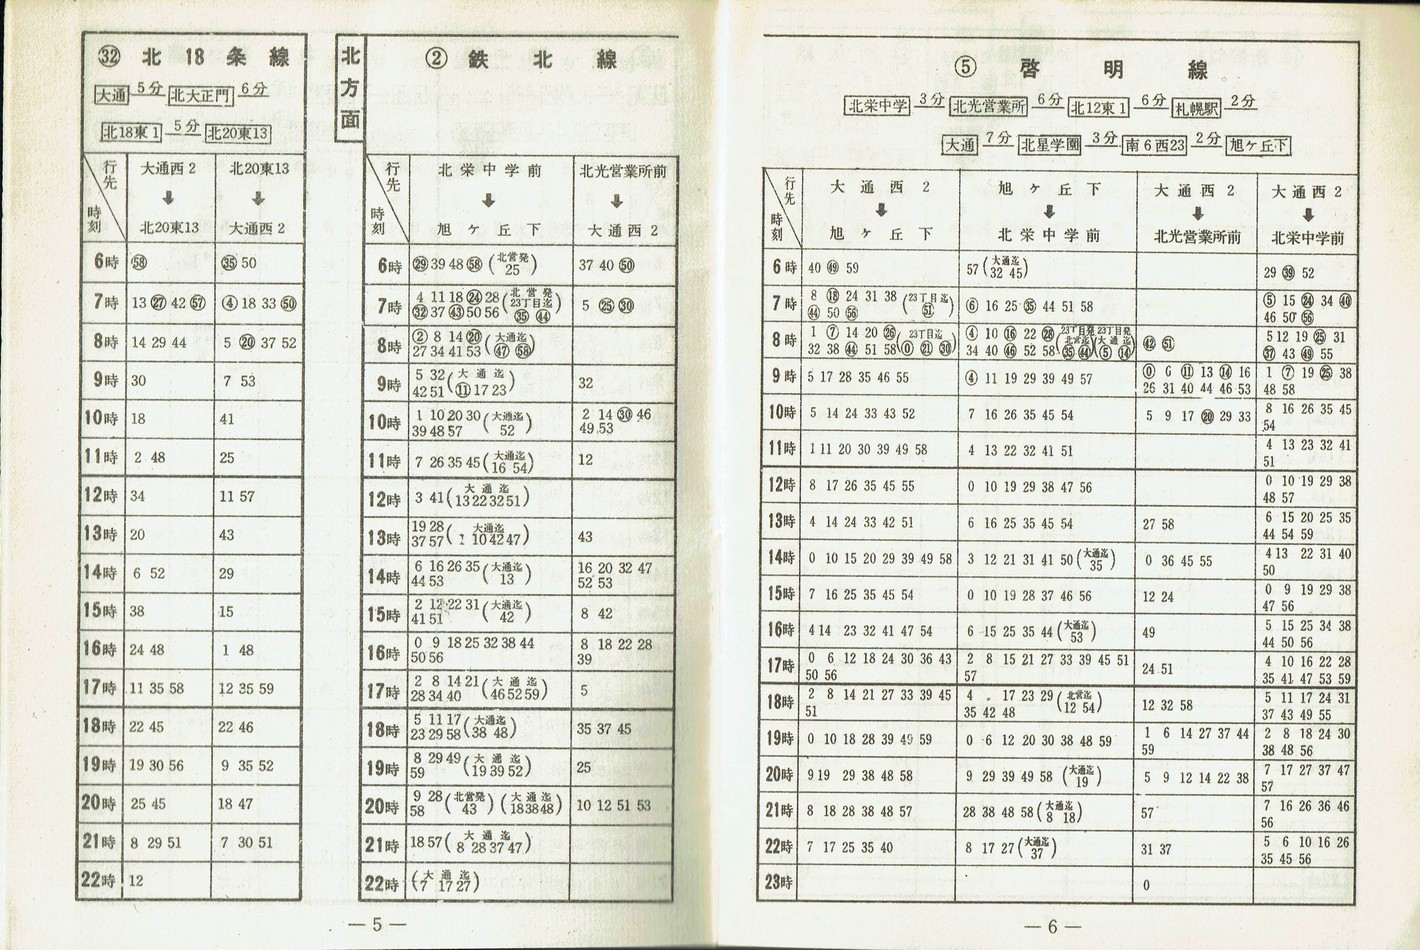 ㉜ 北 18 条 線
大通 5分 北大正門 6分
北18東1 5分 北20東13
行先 時刻 大通西2 ⬇ 北20東13 北20東13 ⬇ 大通西2
6時 58 35 50
7時 13 27 42 57 4 18 33 50
8時 14 29 44 5 20 37 52
9時 30 7 53
10時 18 41
11時 2 48 25
12時 34 11 57
13時 20 43
14時 6 52 29
15時 38 15
16時 24 48 1 48
17時 11 35 58 12 35 59
18時 22 45 22 46
19時 19 30 56 9 35 52
20時 25 45 18 47
21時 8 29 51 7 30 51
22時 12
北方面
② 鉄 北 線
行先 時刻 北栄中学前 ⬇ 旭ヶ丘下 北光営業所前 ⬇ 大通西2
6時 ㉙ 39 48 58 (北営発 25) 37 40 50
7時 4 11 18 ㉔ 28 32 37 43 50 56 (北営発 23丁目迄 35 44) 5 ㉕ ㉚
8時 ② 8 14 ⑳ 27 34 41 53 (大通迄 47 58)
9時 5 32 42 51 (大通迄 ⑪ 17 23) 32
10時 1 10 20 30 39 48 57 (大通迄 52) 2 14 ㉚ 46 49 53
11時 7 26 35 45 (大通迄 16 54) 12
12時 3 41 (大通迄 13 22 32 51)
13時 19 28 37 57 (大通迄 1 10 42 47) 43
14時 6 16 26 35 44 53 (大通迄 13) 16 20 32 47 52 53
15時 2 12 22 31 41 51 (大通迄 42) 8 42
16時 0 9 18 25 32 38 44 50 56 8 18 22 28 39
17時 2 8 14 21 28 34 40 (大通迄 46 52 59) 5
18時 5 11 17 23 29 58 (大通迄 38 48) 35 37 45
19時 8 29 49 59 (大通迄 19 39 52) 25
20時 9 28 58 (北営発 43) (大通迄 18 38 48) 10 12 51 53
21時 18 57 (大通迄 8 28 37 47)
22時 (大通迄 7 17 27)
― 5 ―
⑤ 啓 明 線
北栄中学 3分 北光営業所 6分 北12東1 6分 札幌駅 2分
大通 7分 北星学園 3分 南6西23 2分 旭ヶ丘下
行先 時刻 大通西2 ⬇ 旭ヶ丘下 旭ヶ丘下 ⬇ 北栄中学前 大通西2 ⬇ 北光営業所前 大通西2 ⬇ 北栄中学前
6時 40 49 59 57 (大通迄 32 45) 29 39 52
7時 8 ⑱ 24 31 38 44 50 56 (23丁目迄 51) ⑥ 16 25 35 44 51 58 ⑤ 15 ㉔ 34 40 46 50 56
8時 1 ⑦ 14 20 26 32 38 44 51 58 (23丁目迄 0 21 30) ④ 10 ⑯ 22 28 34 40 46 52 58 (23丁目発 北営迄 35 44) (23丁目発 大通迄 5 14) 42 51 5 12 19 ㉕ 31 37 43 49 55
9時 5 17 28 35 46 55 ④ 11 19 29 39 49 57 0 6 ⑪ 13 ⑭ 16 26 31 40 44 46 53 1 ⑦ 19 ㉕ 38 48 58
10時 5 14 24 33 43 52 7 16 26 35 45 54 5 9 17 ⑳ 29 33 8 16 26 35 45 54
11時 1 11 20 30 39 49 58 4 13 22 32 41 51 4 13 23 32 41 51
12時 8 17 26 35 45 55 0 10 19 29 38 47 56 0 10 19 29 38 48 57
13時 4 14 24 33 42 51 6 16 25 35 45 54 27 58 6 15 20 25 35 44 54 59
14時 0 10 15 20 29 39 49 58 3 12 21 31 41 50 (大通迄 35) 0 36 45 55 4 13 22 31 40 50
15時 7 16 25 35 45 54 0 10 19 28 37 46 56 12 24 0 9 19 29 38 47 56
16時 4 14 23 32 41 47 54 6 15 25 35 44 (大通迄 53) 49 5 15 25 34 38 44 50 56
17時 0 6 12 18 24 30 36 43 50 56 2 8 15 21 27 33 39 45 51 57 24 51 4 10 16 22 28 35 41 47 53 59
18時 2 8 14 21 27 33 39 45 51 4 17 23 29 35 42 48 (北営迄 12 54) 12 32 58 5 11 17 24 31 37 43 49 55
19時 0 10 18 28 39 49 59 0 6 12 20 30 38 48 59 1 6 14 27 37 44 59 2 8 18 24 30 38 48 56
20時 9 19 29 38 48 58 9 29 39 49 58 (大通迄 19) 5 9 12 14 22 38 7 17 27 37 47 57
21時 8 18 28 38 48 57 28 38 48 58 (大通迄 8 18) 57 7 16 26 36 46 56
22時 7 17 25 35 40 8 17 27 (大通迄 37) 31 37 5 6 10 16 26 35 45 56
23時 0
― 6 ―